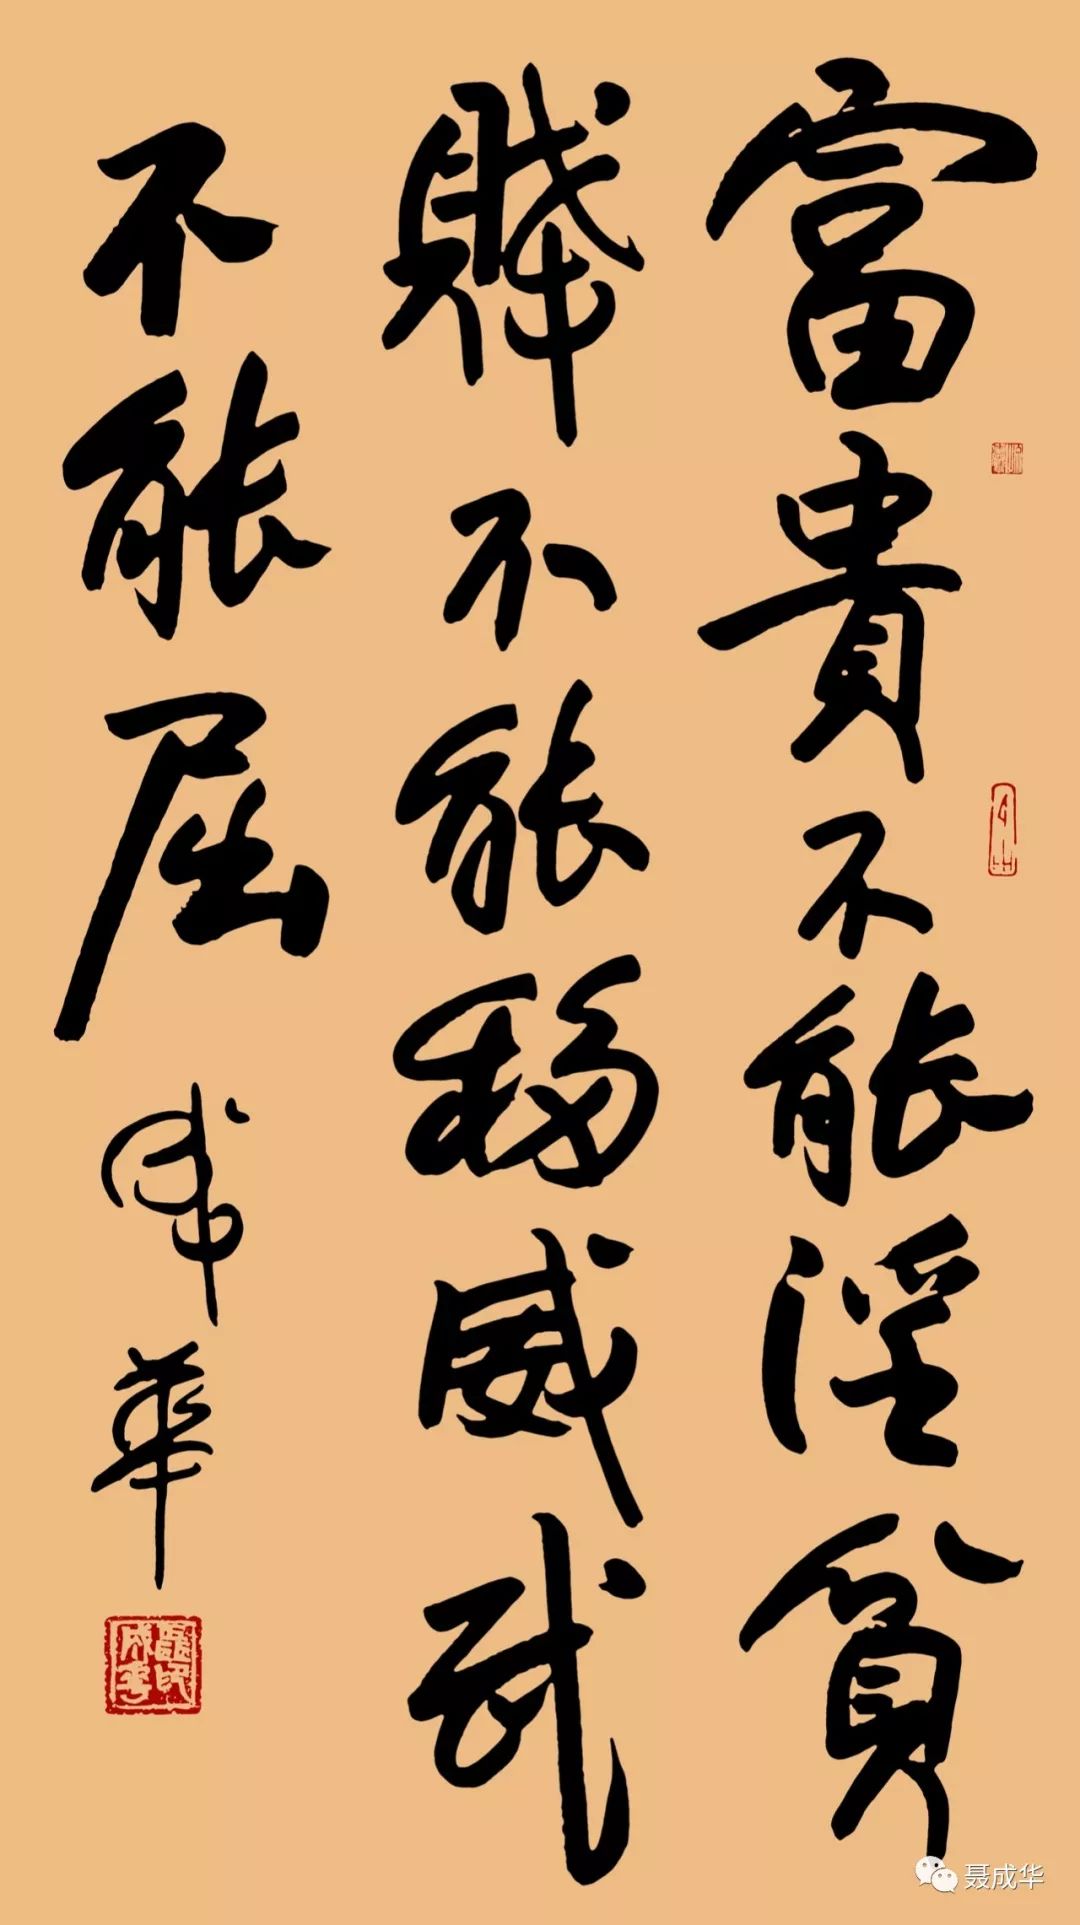 富貴不能淫貧
賤不能移威武
不能屈
成華
聂成华